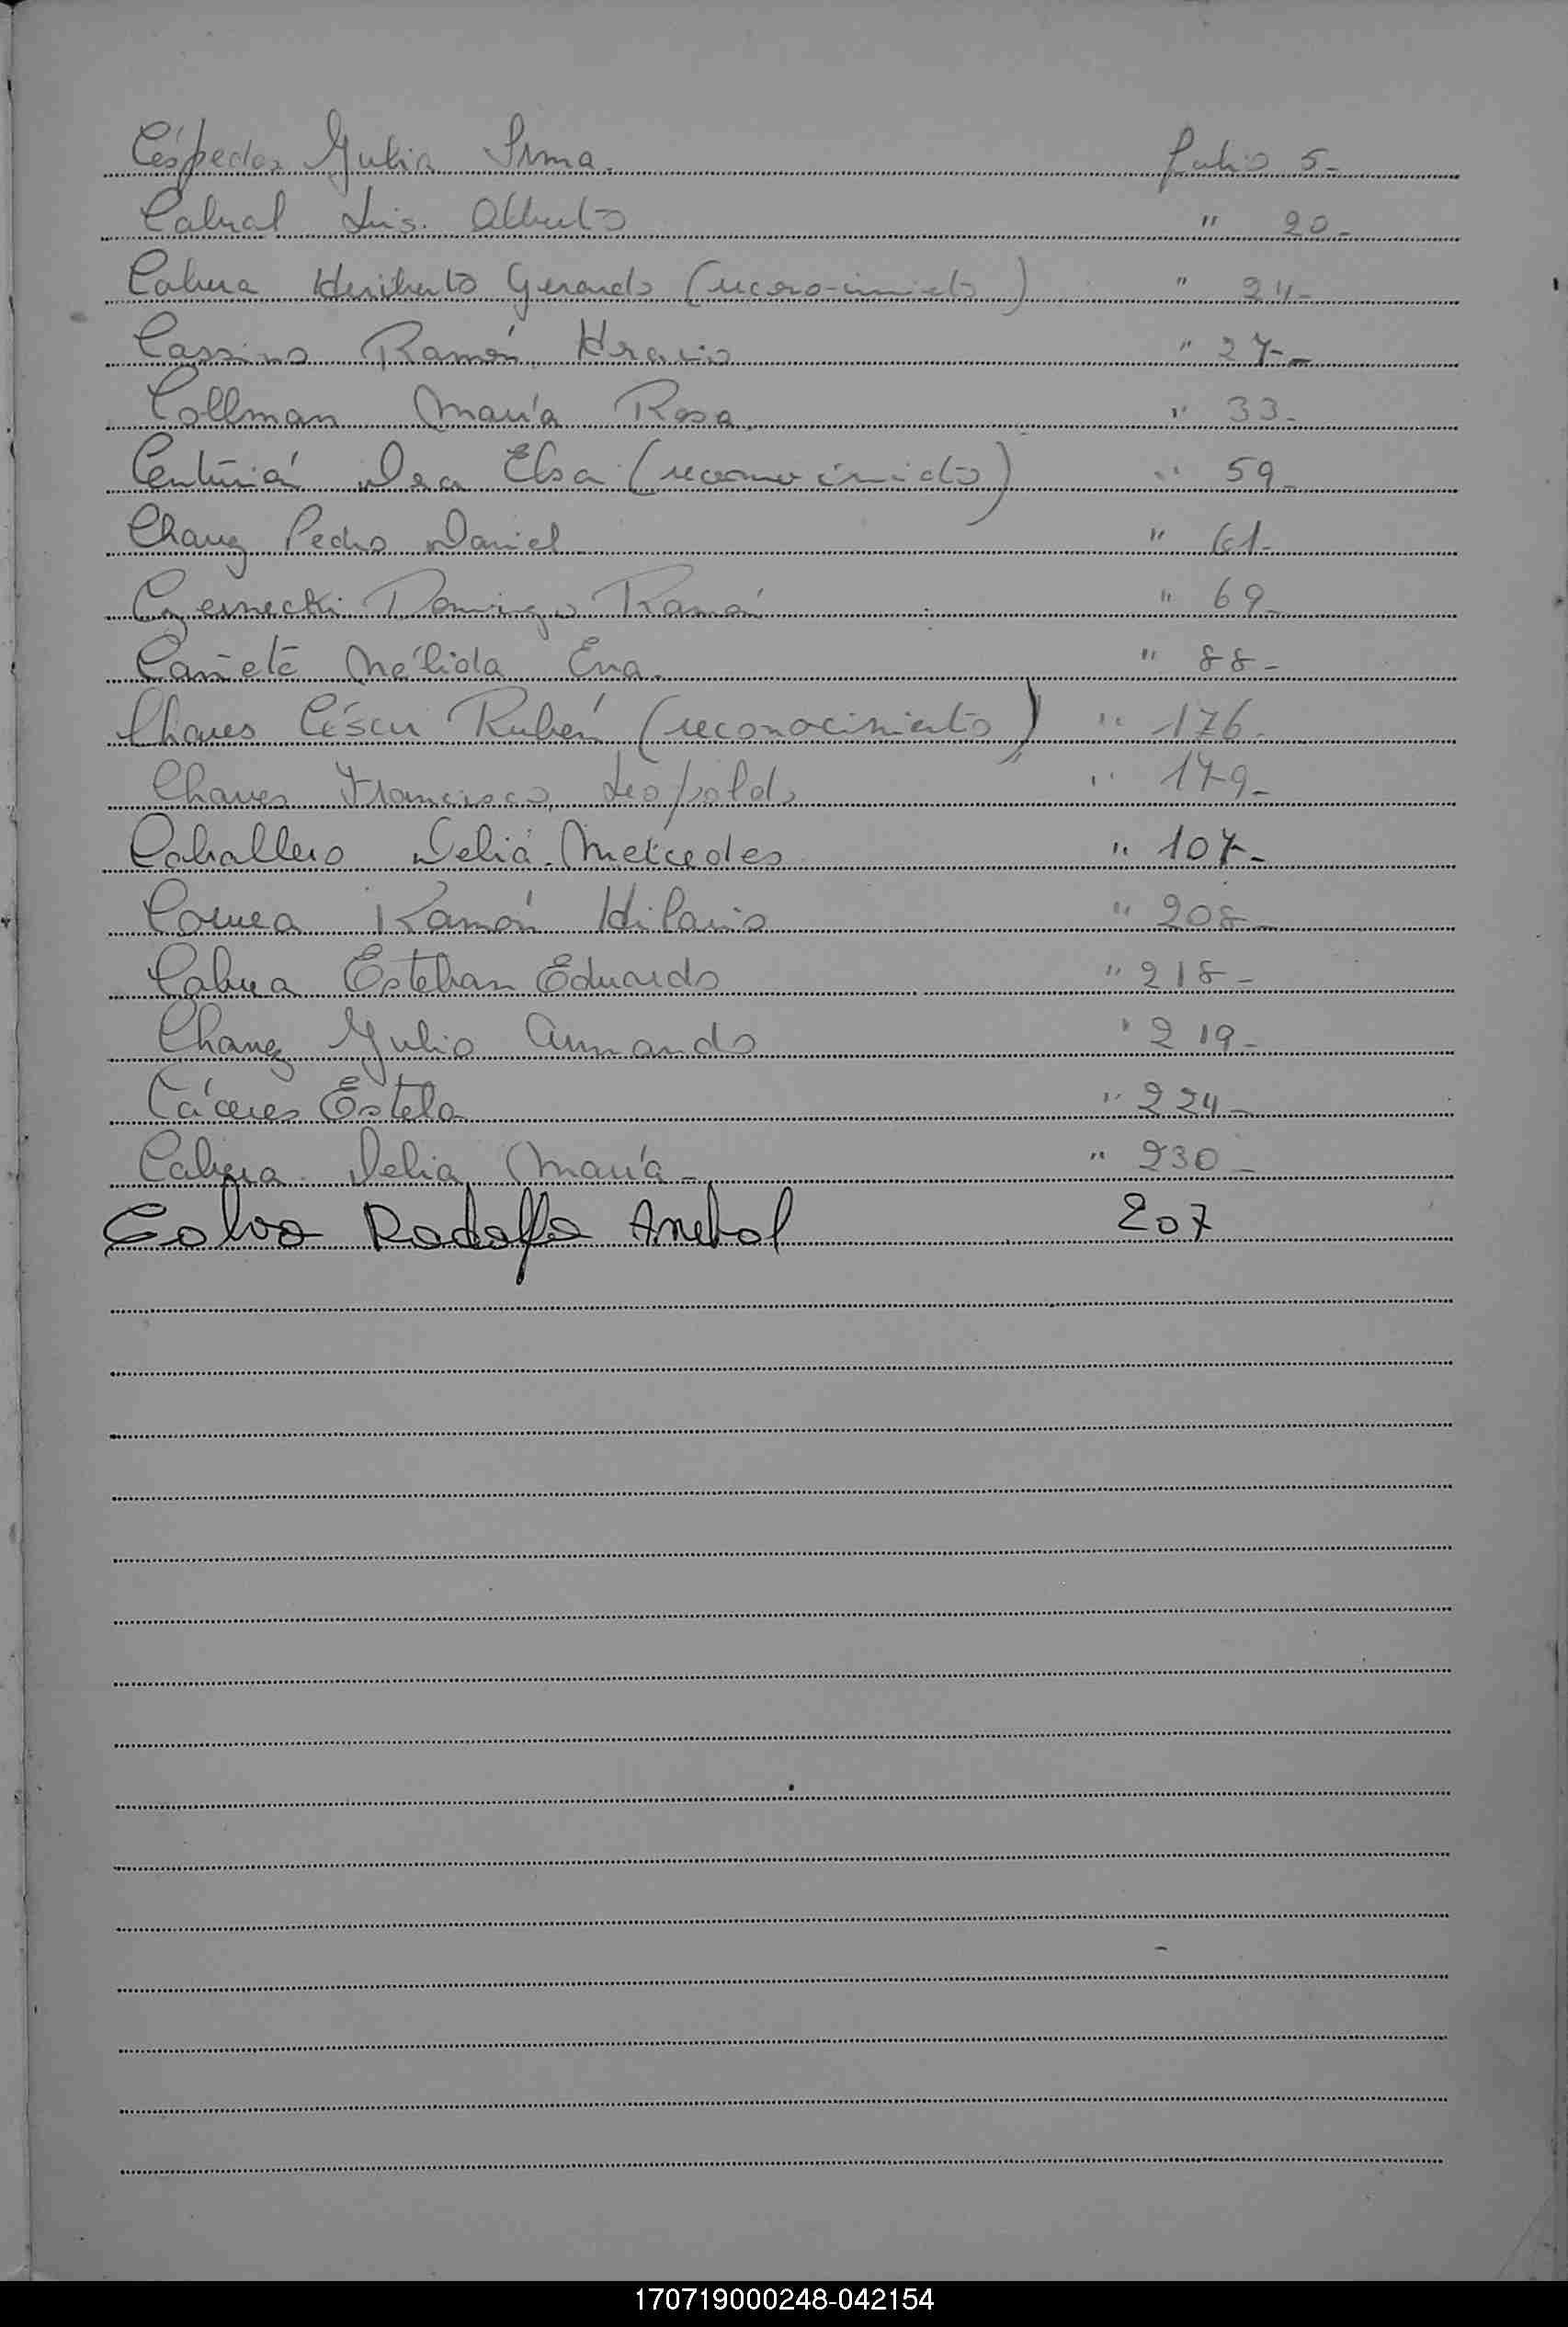 Céspedes Julia Irma. folio 5-
Cabral Luis Alberto " 20-
Cabrera Heriberto Gerardo (reconocimiento) " 24-
Cassino Ramón Horacio " 27-
Collman María Rosa " 33-
Centurión Elsa (reconocimiento) " 59-
Chavez Pedro Daniel " 61-
Czernecki Domingo Ramón " 69-
Cañete Nélida Ena. " 88-
Chaves César Rubén (reconocimiento) " 176-
Chaves Francisco Leopoldo " 179-
Caballero Delia Mercedes " 107-
Correa Ramón Hilario " 208-
Cabrera Esteban Eduardo " 218-
Chavez Julio Armando " 219-
Cáceres Estela " 224-
Cabrera Delia María- " 230-
Calvo Rodolfo 207
170719000248-042154